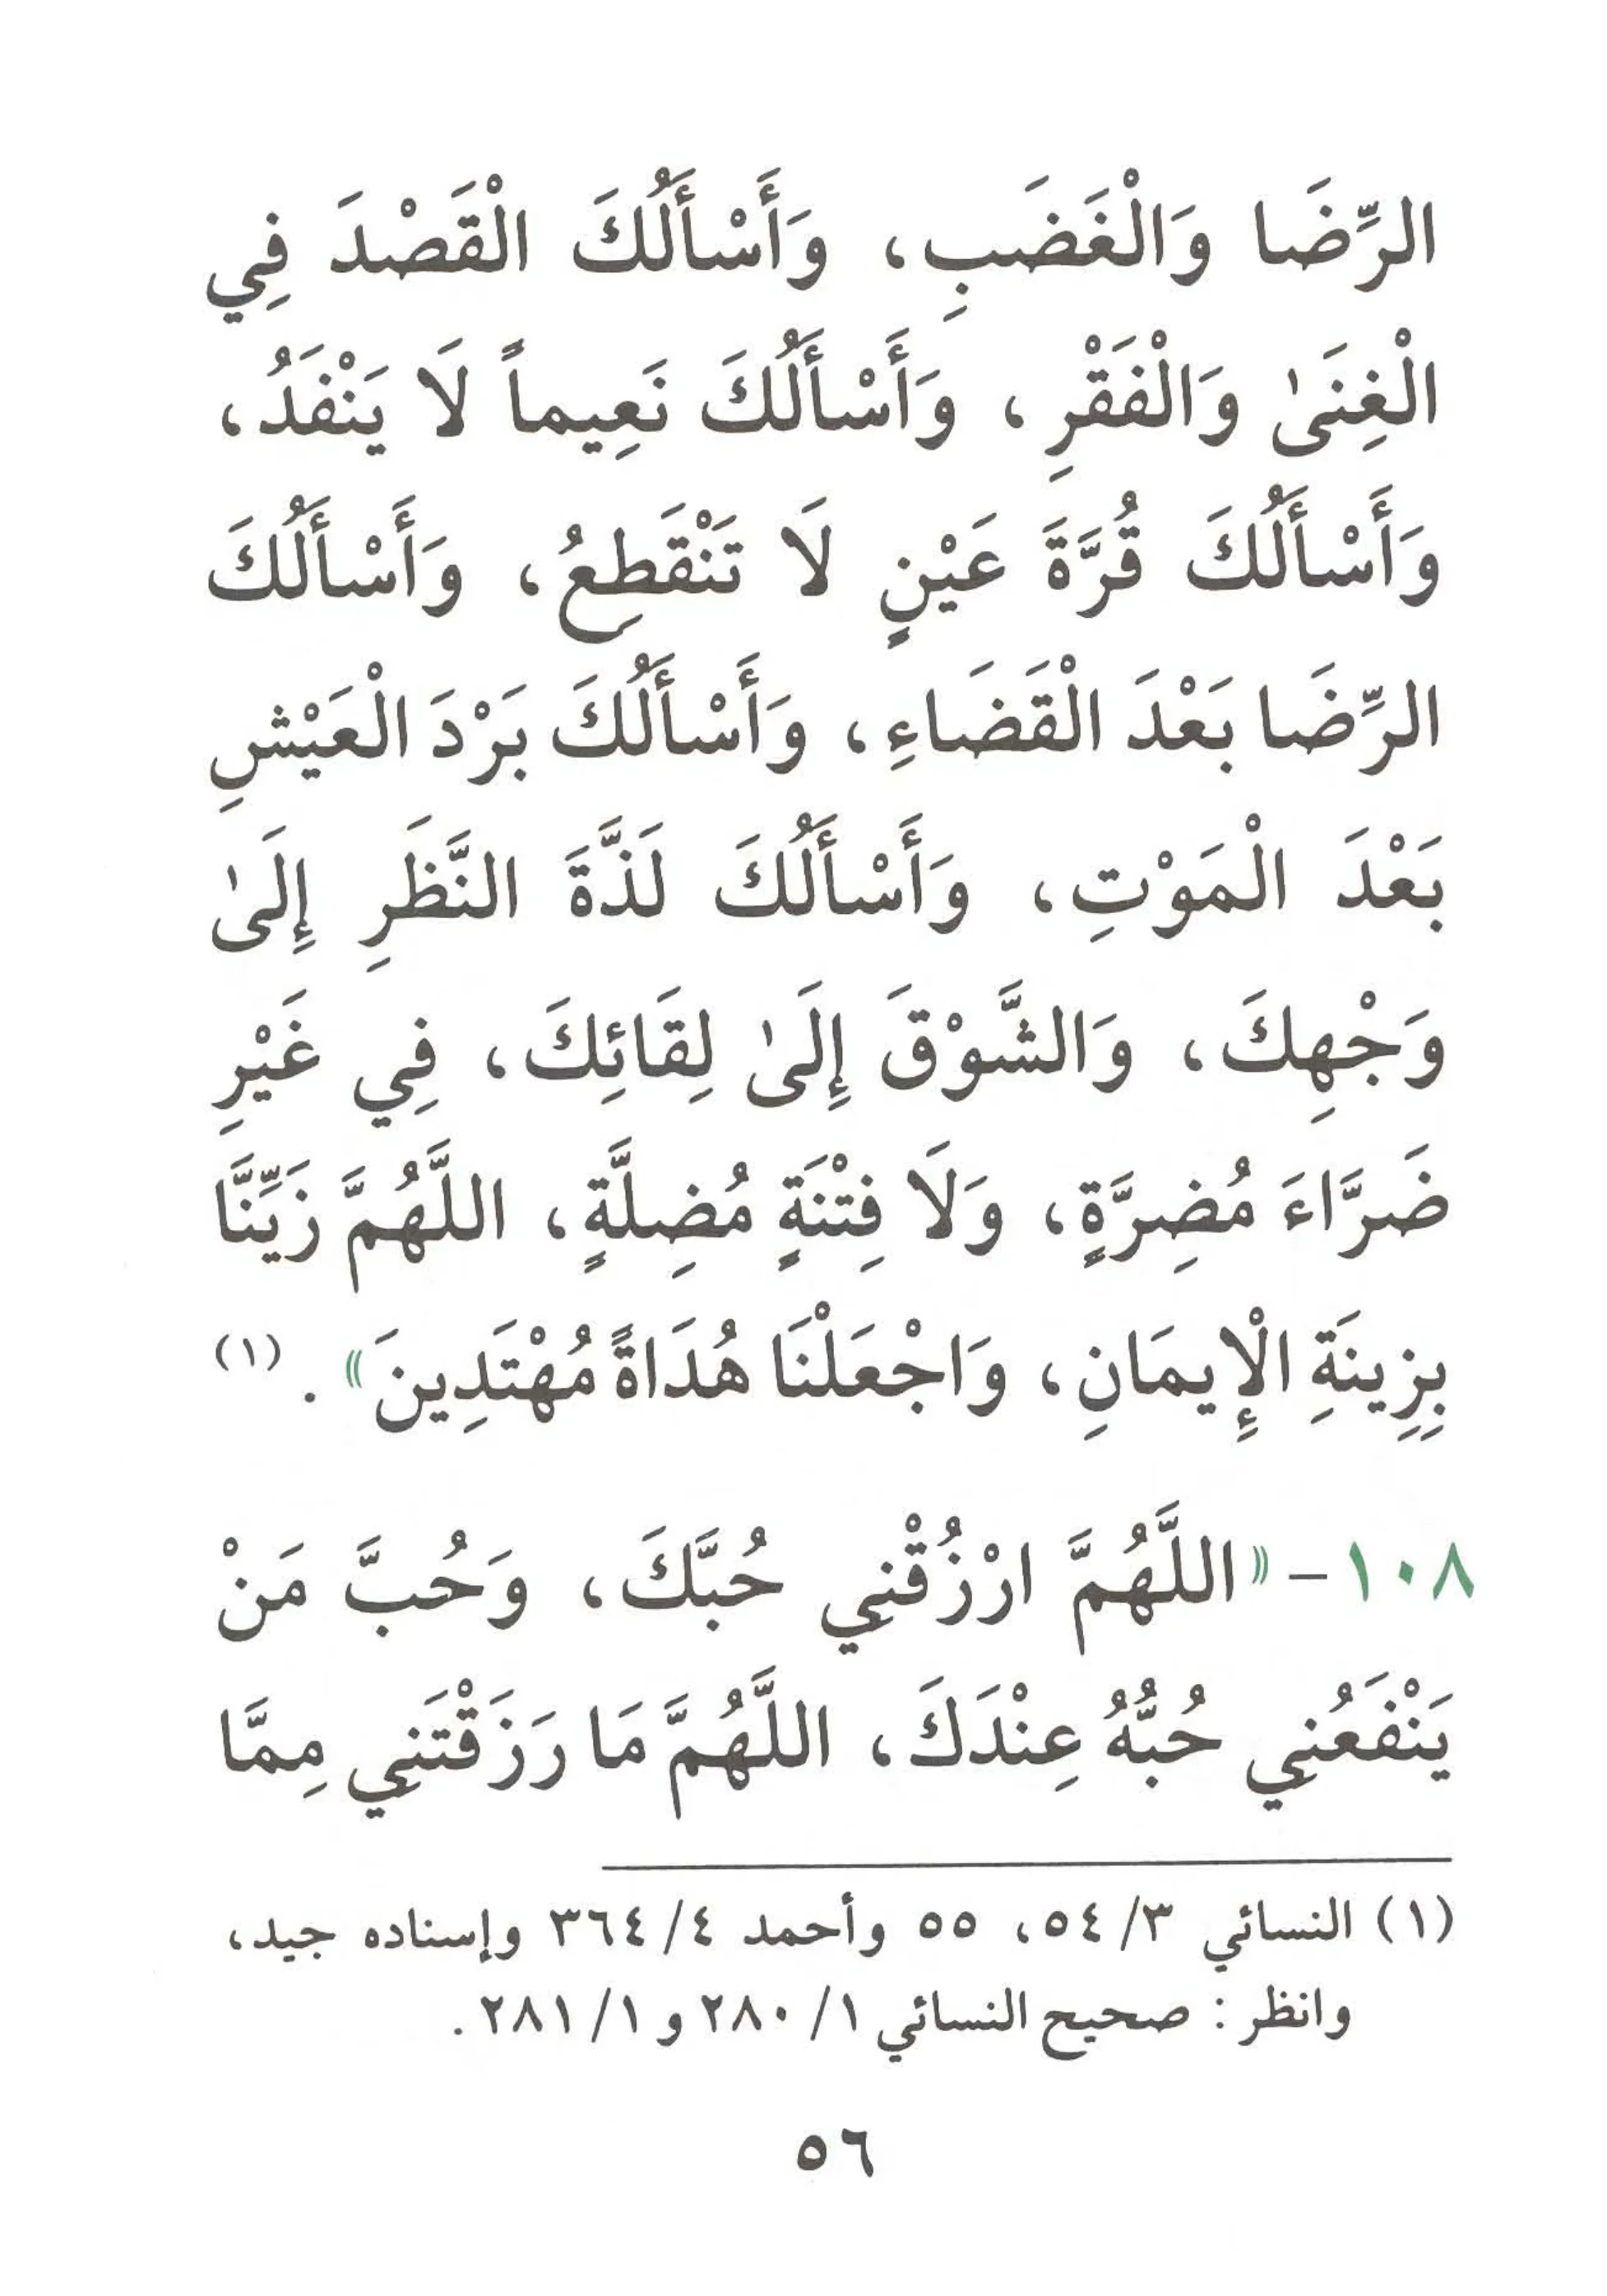 الرِّضَا وَالْغَضَبِ، وَأَسْأَلُكَ الْقَصْدَ فِي
الْغِنَىٰ وَالْفَقْرِ، وَأَسْأَلُكَ نَعِيماً لَا يَنْفَدُ،
وَأَسْأَلُكَ قُرَّةَ عَيْنٍ لَا تَنْقَطِعُ، وَأَسْأَلُكَ
الرِّضَا بَعْدَ الْقَضَاءِ، وَأَسْأَلُكَ بَرْدَ الْعَيْشِ
بَعْدَ الْمَوْتِ، وَأَسْأَلُكَ لَذَّةَ النَّظَرِ إِلَىٰ
وَجْهِكَ، وَالشَّوْقَ إِلَىٰ لِقَائِكَ، فِي غَيْرِ
ضَرَّاءَ مُضِرَّةٍ، وَلَا فِتْنَةٍ مُضِلَّةٍ، اللَّهُمَّ زَيِّنَّا
بِزِينَةِ الْإِيمَانِ، وَاجْعَلْنَا هُدَاةً مُهْتَدِينَ». (١)
١٠٨- «اللَّهُمَّ ارْزُقْنِي حُبَّكَ، وَحُبَّ مَنْ
يَنْفَعُنِي حُبُّهُ عِنْدَكَ، اللَّهُمَّ مَا رَزَقْتَنِي مِمَّا
(١) النسائي ٣/ ٥٤، ٥٥ وأحمد ٤/ ٣٦٤ وإسناده جيد،
وانظر: صحيح النسائي ١/ ٢٨٠ و ١/ ٢٨١.
٥٦